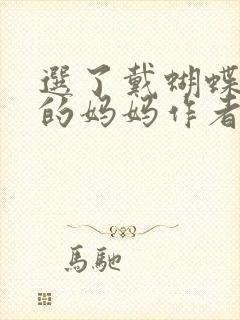 選了戴蝴蝶
的妈妈作者
馬馳